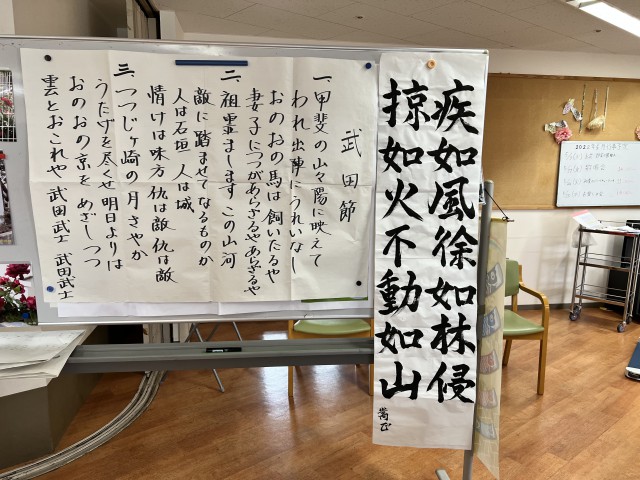 疾如風徐如林侵
掠如火不動如山
武田節
一、甲斐の山々陽に映えて
われ出陣にうれいなし
おのおの馬は飼いたるや
妻子につつがあらざるやあらざるや
二、祖霊まします この山河
敵に踏ませてなるものか
人は石垣 人は城
情けは味方 仇は敵 仇は敵
三、つつじヶ崎の月さやか
うたげを尽くせ明日よりは
おのおの京を めざしつつ
雲とおこれや 武田武士 武田武士